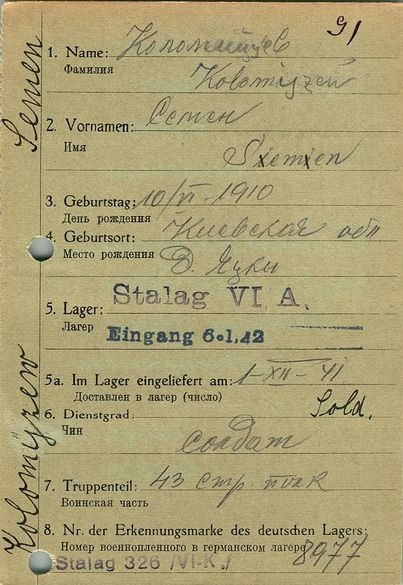 91
1. Name: Коломыйцев
Фамилия
Kolomijzew
2. Vornamen: Семен
Имя
Siemien
3. Geburtstag: 10/VI-1910
День рождения
4. Geburtsort: Киевская обл
Место рождения Д. Яцки
5. Lager: Stalag VI A.
Лагер
Eingang 6.1.42
5a. Im Lager eingeliefert am: 1-XII-41
Доставлен в лагер (число)
6. Dienstgrad: Sold.
Чин
солдат
7. Truppenteil: 43 стр. полк
Воинская часть
8. Nr. der Erkennungsmarke des deutschen Lagers:
Номер военнопленного в германском лагере 8977
Stalag 326 /VI-K./
Kolomijzew Semen